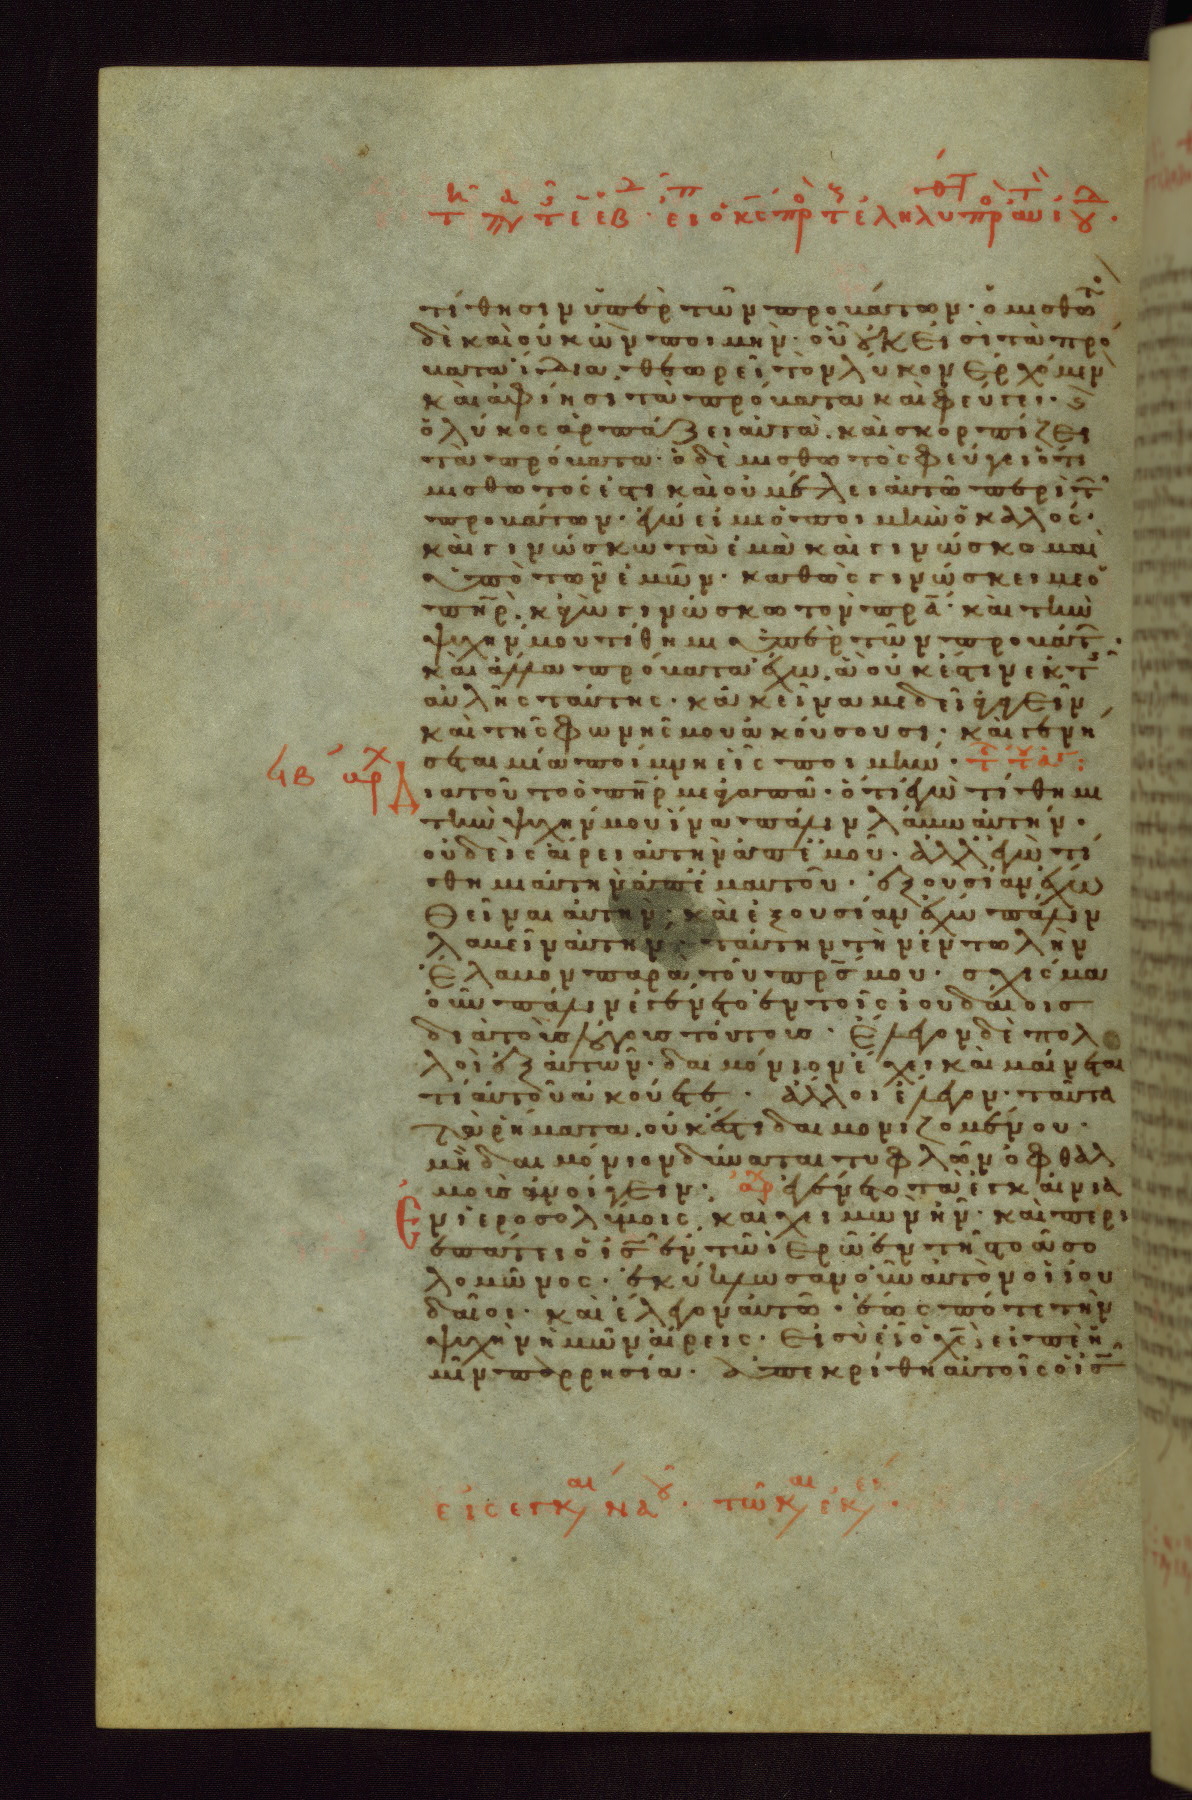 τίθησιν ὑπὲρ τῶν προβάτων· ὁ μισθωτὸ
δὲ καὶ οὐκ ὢν ποιμὴν· οὗ οὐκ εἰσὶ τὰ πρό
βατα ἴδια, θεωρεῖ τὸν λύκον ἐρχόμεν
καὶ ἀφίησι τὰ πρόβατα καὶ φεύγει· καὶ
ὁ λύκος ἁρπάζει αὐτὰ. καὶ σκορπίζει
τὰ πρόβατα· ὁ δὲ μισθωτὸς φεύγει ὅτι
μισθωτός ἐστι καὶ οὐ μέλει αὐτῶ περὶ τῶν
προβάτων· ἐγώ εἰμι ὁ ποιμὴν ὁ καλός·
καὶ γινώσκω τὰ ἐμὰ καὶ γινώσκομαι
ὑπὸ τῶν ἐμῶν· καθὼς γινώσκει με ὁ
πηρ. κἀγὼ γινώσκω τὸν πρα· καὶ τὴν
ψυχήν μου τίθημι ὑπὲρ τῶν προβάτ·
καὶ ἄλλα πρόβατα ἔχω, ἃ οὐκ ἔστιν ἐκ τῆς
αὐλῆς ταύτης· κἀκεῖνά με δεῖ ἀγαγεῖν
καὶ τῆς φωνῆς μου ἀκούσουσι· καὶ γενή
σεται μία ποίμνη εἷς ποιμήν·
ϟβ αρχ Διατοῦτο ὁ πηρ με ἀγαπᾶ· ὅτι ἐγὼ τίθημι
τὴν ψυχήν μου ἵνα πάλιν λάβω αὐτήν·
οὐδεὶς αἴρει αὐτὴν ἀπ' ἐμοῦ· ἀλλ' ἐγὼ τί
θημι αὐτὴν ἀπ' ἐμαυτοῦ· ἐξουσίαν ἔχω
θεῖναι αὐτήν· καὶ ἐξουσίαν ἔχω πάλιν
λαβεῖν αὐτήν· ταύτην τὴν ἐντολὴν
ἔλαβον παρὰ τοῦ πρς μου· σχίσμα
οὖν πάλιν ἐγένετο ἐν τοῖς ἰουδαίοις
διὰ τοὺς λόγους τούτους· ἔλεγον δὲ πολ
λοὶ ἐξ αὐτῶν· δαιμόνιον ἔχει καὶ μαίνεται
τί αὐτοῦ ἀκούετε· ἄλλοι ἔλεγον· ταῦτα
τὰ ῥήματα. οὐκ ἔστι δαιμονιζομένου·
μὴ δαιμόνιον δύναται τυφλῶν ὀφθαλ
μοὺς ἀνοίγειν· αρχ ἐγένετο τὰ ἐγκαίνια
Ἐν ἱεροσολύμοις, καὶ χειμὼν ἦν· καὶ περι
επάτει ὁ ις ἐν τῶ ἱερῶ ἐν τῆ στοᾶ σο
λομῶνος· ἐκύκλωσαν οὖν αὐτὸν οἱ ἰου
δαῖοι· καὶ ἔλεγον αὐτῶ· ἕως πότε τὴν
ψυχὴν ἡμῶν αἴρεις· εἰ σὺ εἶ ὁ χς εἰπὲ ἡ
μῖν παρρησία· ἀπεκρίθη αὐτοῖς ὁ ις